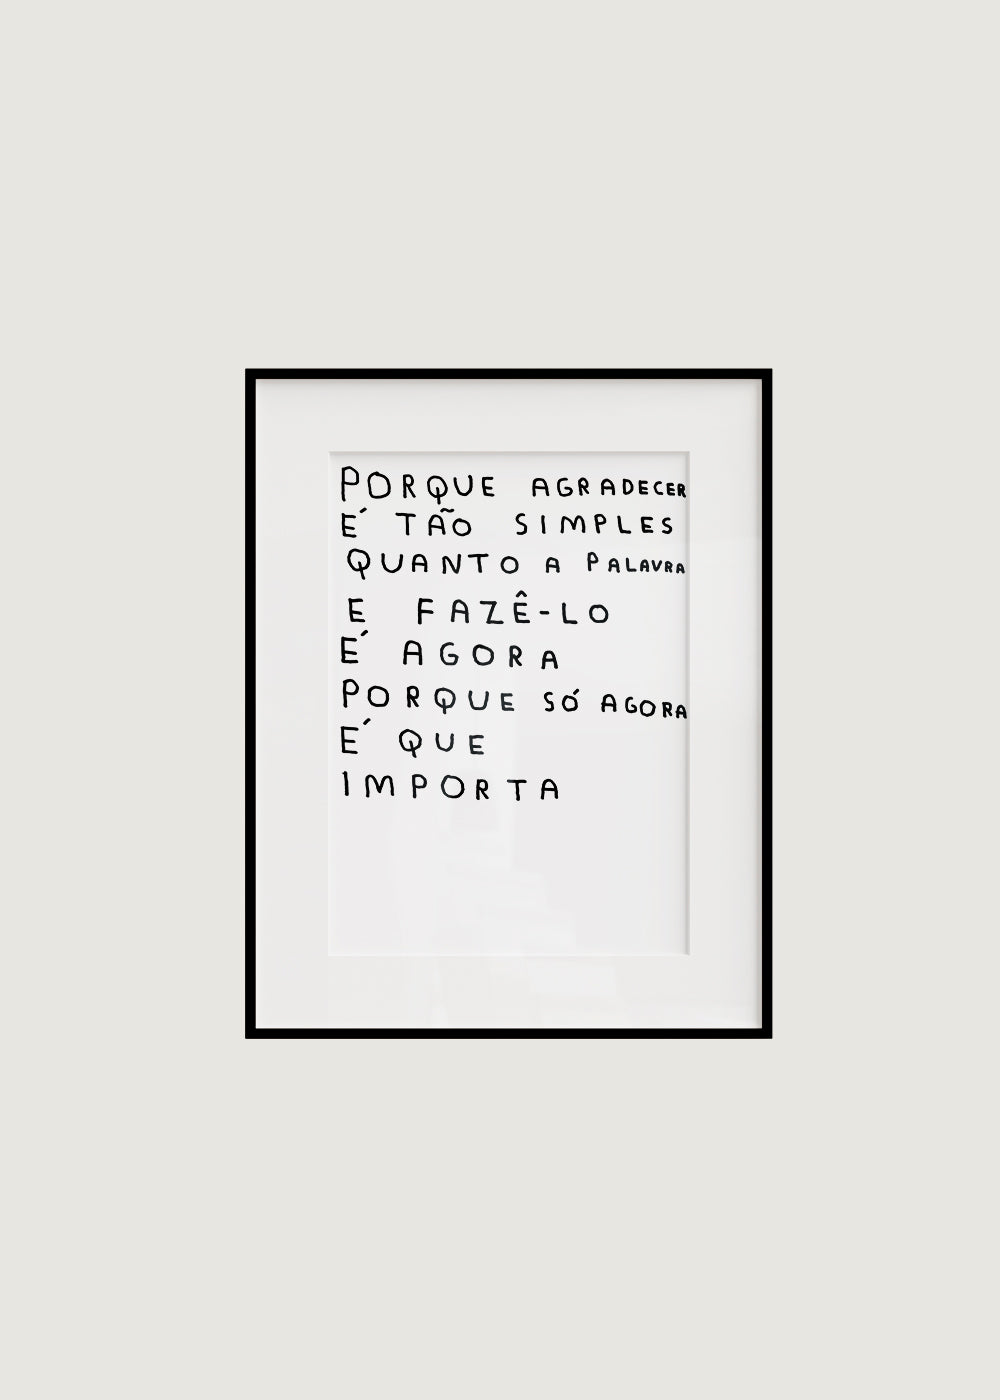 PORQUE AGRADECER
É TÃO SIMPLES
QUANTO A PALAVRA
E FAZÊ-LO
É AGORA
PORQUE SÓ AGORA
É QUE
IMPORTA